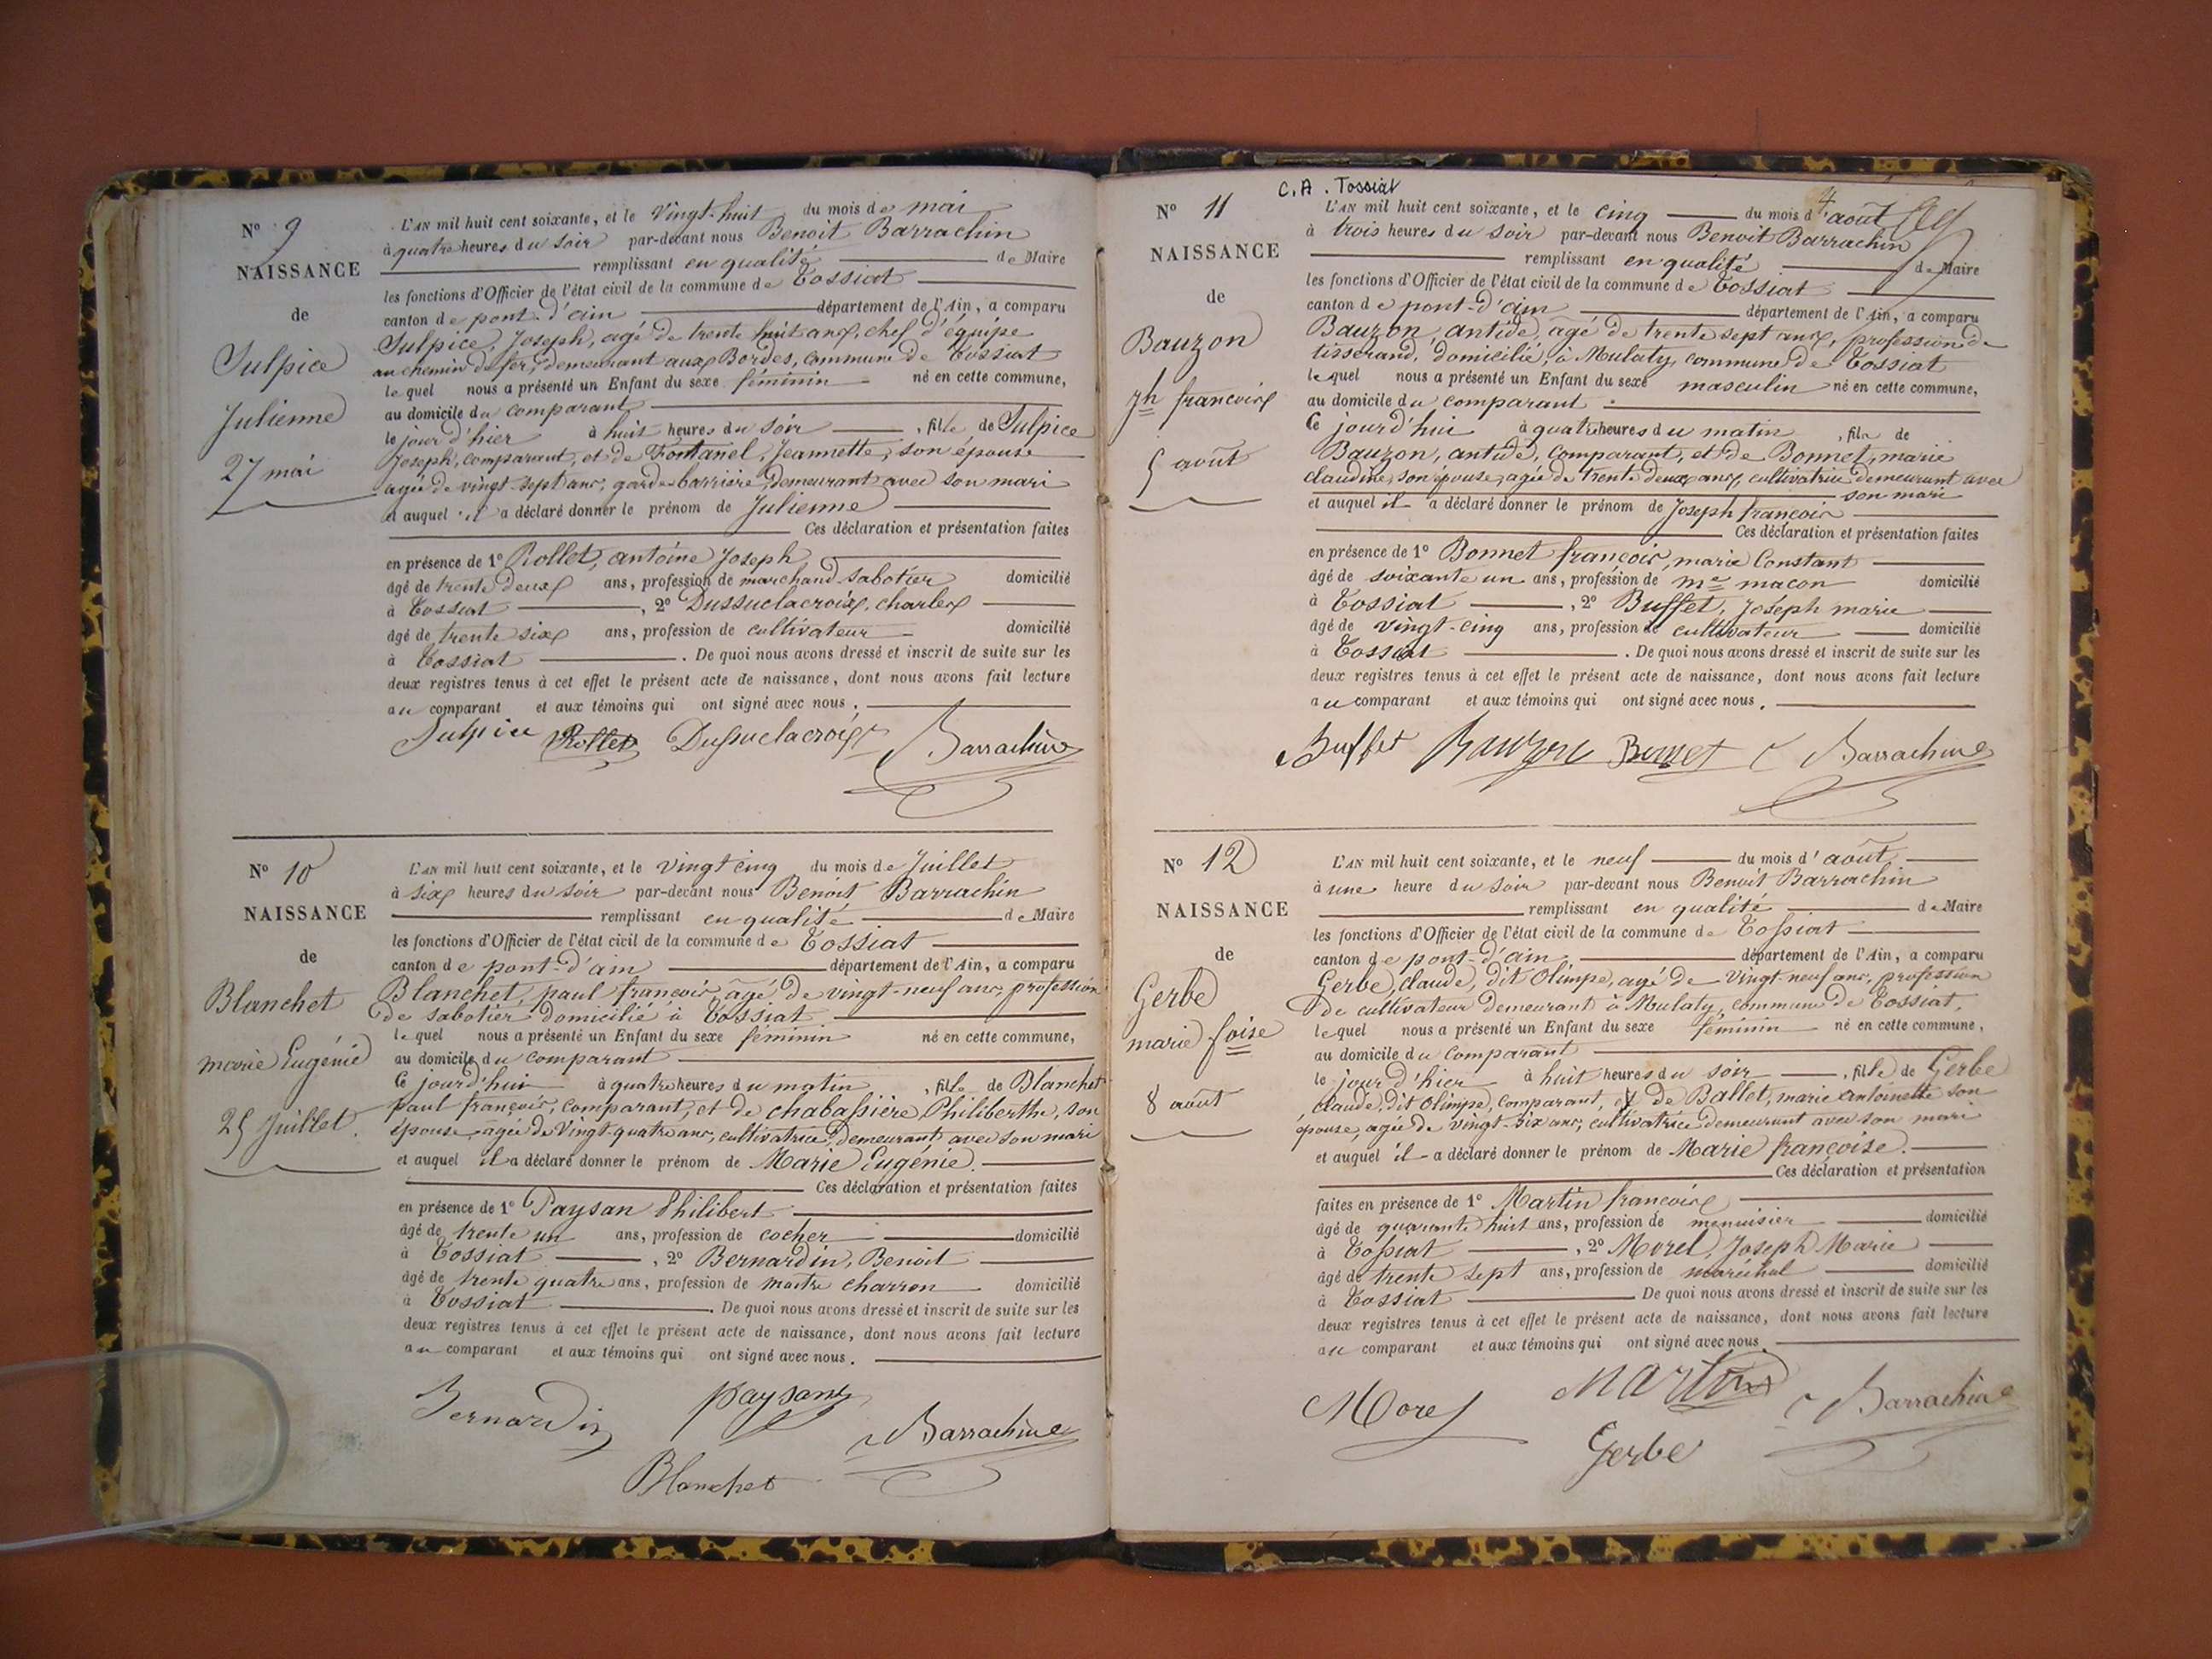 N° 9
NAISSANCE
de
Sulpice
Julienne
27 mai
L'AN mil huit cent soixante, et le Vingt-huit du mois de mai
à quatre heures du soir par-devant nous Benoit Barrachin
remplissant en qualité de Maire
les fonctions d'Officier de l'état civil de la commune de Tossiat
canton de pont-d'ain département de l'Ain, a comparu
Sulpice, Joseph, agé de trente huit ans, chef d'équipe
au chemin de fer, demeurant aux Bordes, commune de Tossiat
le quel nous a présenté un Enfant du sexe féminin né en cette commune,
au domicile du comparant
le jour d'hier à huit heures du soir , fille de Sulpice
Joseph, comparant, et de Fontanel, Jeannette, son épouse
agée de vingt-sept ans, garde-barrière, demeurant avec son mari
et auquel il a déclaré donner le prénom de Julienne
Ces déclaration et présentation faites
en présence de 1° Rollet, antoine Joseph
âgé de trente deux ans, profession de marchand sabotier domicilié
à Tossiat , 2° Dussuclacroix, charles
âgé de trente six ans, profession de cultivateur domicilié
à Tossiat . De quoi nous avons dressé et inscrit de suite sur les
deux registres tenus à cet effet le présent acte de naissance, dont nous avons fait lecture
au comparant et aux témoins qui ont signé avec nous.
Sulpice Rollet Dussuclacroix Barrachin
N° 10
NAISSANCE
de
Blanchet
marie Eugénie
25 Juillet
L'AN mil huit cent soixante, et le vingt cinq du mois de Juillet
à six heures du soir par-devant nous Benoit Barrachin
remplissant en qualité de Maire
les fonctions d'Officier de l'état civil de la commune de Tossiat
canton de pont-d'ain département de l'Ain, a comparu
Blanchet, paul francois, âgé de vingt-neuf ans, profession
de sabotier domicilié à Tossiat
le quel nous a présenté un Enfant du sexe féminin né en cette commune,
au domicile du comparant
Ce jourd'hui à quatre heures du matin , fille de Blanchet
paul françois, comparant, et de chabassière Philiberthe, son
épouse, agée de Vingt-quatre ans, cultivatrice, demeurant avec son mari
et auquel il a déclaré donner le prénom de Marie Eugénie.
Ces déclaration et présentation faites
en présence de 1° Paysan Philibert
âgé de trente un ans, profession de cocher domicilié
à Tossiat , 2° Bernardin, Benoit
âgé de trente quatre ans, profession de maitre charron domicilié
à Tossiat . De quoi nous avons dressé et inscrit de suite sur les
deux registres tenus à cet effet le présent acte de naissance, dont nous avons fait lecture
au comparant et aux témoins qui ont signé avec nous.
Bernardin paysant Barrachin
Blanchet
C.A. Tossiat
N° 11
NAISSANCE
de
Bauzon
jh francois
5 août
4
L'AN mil huit cent soixante, et le cinq du mois d'août
à trois heures du soir par-devant nous Benoit Barrachin
remplissant en qualité de Maire
les fonctions d'Officier de l'état civil de la commune de Tossiat
canton de pont-d'ain département de l'Ain, a comparu
Bauzon, antide, âgé de trente sept ans, profession de
tisserand, domicilié à Mulaty, commune de Tossiat
le quel nous a présenté un Enfant du sexe masculin né en cette commune,
au domicile du comparant
Ce jourd'hui à quatre heures du matin , fils de
Bauzon, antide, comparant, et de Bonnet, marie
claudine, son épouse, agée de trente deux ans, cultivatrice demeurant avec
son mari
et auquel il a déclaré donner le prénom de Joseph francois
Ces déclaration et présentation faites
en présence de 1° Bonnet françois, marie Constant
âgé de soixante un ans, profession de me macon domicilié
à Tossiat , 2° Buffet, Joseph marie
âgé de vingt-cinq ans, profession de cultivateur domicilié
à Tossiat . De quoi nous avons dressé et inscrit de suite sur les
deux registres tenus à cet effet le présent acte de naissance, dont nous avons fait lecture
au comparant et aux témoins qui ont signé avec nous.
Buffet Bauzon Bonnet Barrachin
N° 12
NAISSANCE
de
Gerbe
marie foise
8 août
L'AN mil huit cent soixante, et le neuf du mois d'août
à une heure du soir par-devant nous Benoit Barrachin
remplissant en qualité de Maire
les fonctions d'Officier de l'état civil de la commune de Tossiat
canton de pont-d'ain département de l'Ain, a comparu
Gerbe, claude, dit Olimpe, agé de vingt-neuf ans, profession
de cultivateur demeurant à Mulaty, commune de Tossiat,
le quel nous a présenté un Enfant du sexe féminin né en cette commune,
au domicile du comparant
le jour d'hier à huit heures du soir , fille de Gerbe
claude, dit Olimpe, comparant, et de Ballet, marie antoinette son
épouse, agée de vingt-six ans, cultivatrice demeurant avec son mari
et auquel il a déclaré donner le prénom de Marie françoise.
Ces déclaration et présentation
faites en présence de 1° Martin francois
âgé de quarante huit ans, profession de menuisier domicilié
à Tossiat , 2° Morel, Joseph Marie
âgé de trente sept ans, profession de maréchal domicilié
à Tossiat De quoi nous avons dressé et inscrit de suite sur les
deux registres tenus à cet effet le présent acte de naissance, dont nous avons fait lecture
au comparant et aux témoins qui ont signé avec nous.
Morel Martin Barrachin
Gerbe